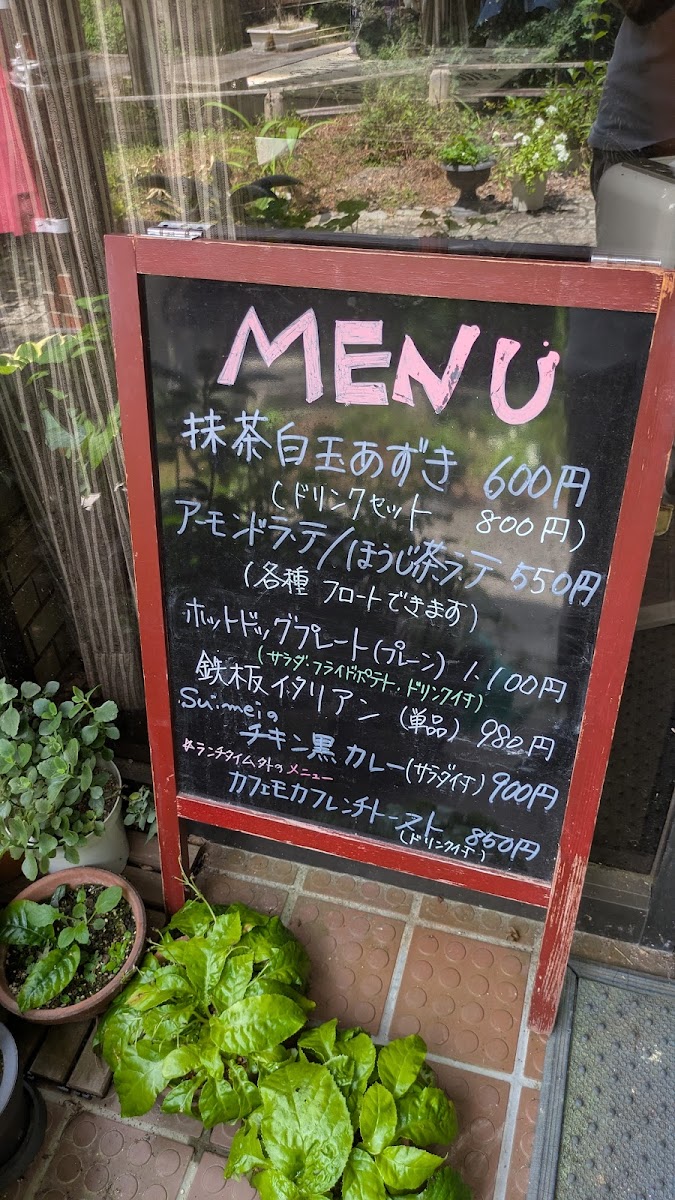 MENU
抹茶白玉あずき 600円
(ドリンクセット 800円)
アーモンドラテ/ほうじ茶ラテ 550円
(各種 フロートできます)
ホットドッグプレート(プレーン) 1,100円
(サラダ・フライドポテト・ドリンク付)
鉄板イタリアン (単品) 980円
Su:meiの
チキン黒カレー(サラダ付) 900円
☆ランチタイム外のメニュー
カフェモカフレンチトースト 850円
(ドリンク付)